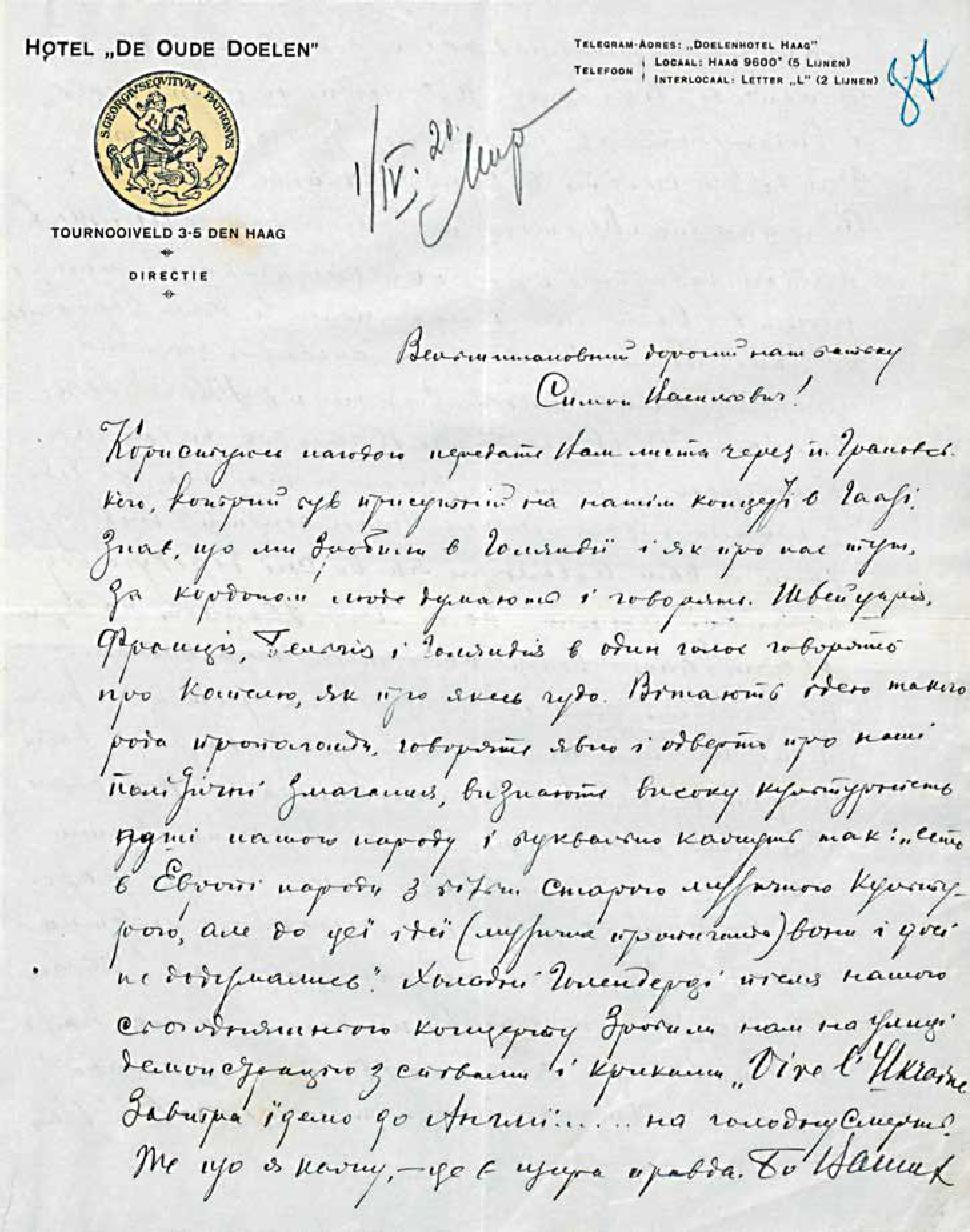 HOTEL „DE OUDE DOELEN"
TELEGRAM-ADRES: „DOELENHOTEL HAAG"
TELEFOON LOCAAL: HAAG 9600* (5 LIJNEN)
INTERLOCAAL: LETTER „L" (2 LIJNEN)
87
S. GEORGIVS EQVITVM · PATRONVS
1/IV. 20.
TOURNOOIVELD 3-5 DEN HAAG
DIRECTIE
Вельмишановний дорогий наш батьку
Симон Васильович!
Користуюсь нагодою передати Вам листа через п. Грановсь-
кого, котрий був присутній на нашім концерті в Гаазі.
Знає, що ми зробили в Голяндії і як про нас тут,
за кордоном, люде думають і говорять. Швейцарія,
Франція, Бельгія і Голяндія в один голос говорять
про Капелю, як про якесь чудо. Вітають ідею такого
рода пропаганди, говорять явно і одверто про наші
політичні змагання, визнають високу культурність
душі нашого народу і буквально кажуть так: „Есть
в Европі народи з більш старою музичною культу-
рою, але до цеї ідеї (музична пропаганда) вони і досі
не додумались". Холодні Голендерці після нашого
сьогодняшнього концерту зробили нам на улиці
демонстрацію з співами і криками „Vive l'Ukraine
Завтра їдемо до Англії...... на голодну смерть.
Те що я кажу, – це є щира правда. Бо Ваших